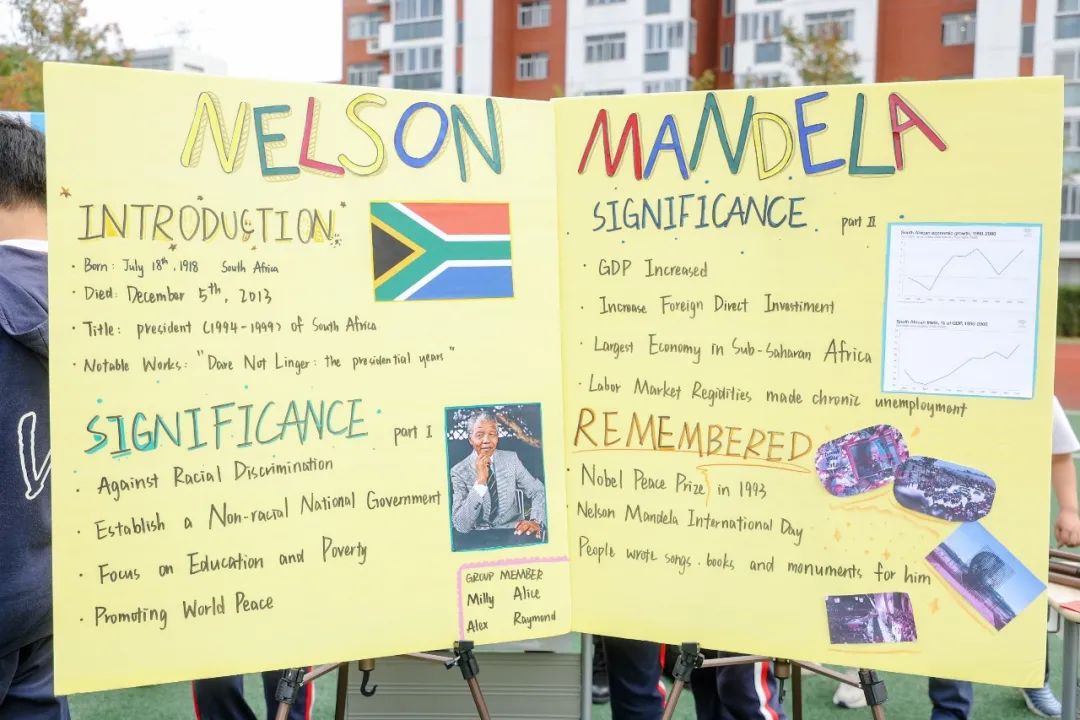 NELSON MANDELA
INTRODUCTION
· Born: July 18th, 1918 South Africa
· Died: December 5th, 2013
· Title: president (1994-1999) of South Africa
· Notable Works: "Dare Not Linger: the presidential years"
SIGNIFICANCE part I
· Against Racial Discrimination
· Establish a Non-racial National Government
· Focus on Education and Poverty
· Promoting World Peace
GROUP MEMBER
Milly Alice
Alex Raymond
SIGNIFICANCE part II
· GDP Increased
· Increase Foreign Direct Investiment
· Largest Economy in Sub-Saharan Africa
· Labor Market Regidities made chronic unemployment
South African economic growth, 1990-2000
South African trade, % of GDP, 1990-2000
REMEMBERED
· Nobel Peace Prize in 1993
· Nelson Mandela International Day
· People wrote songs, books and monuments for him